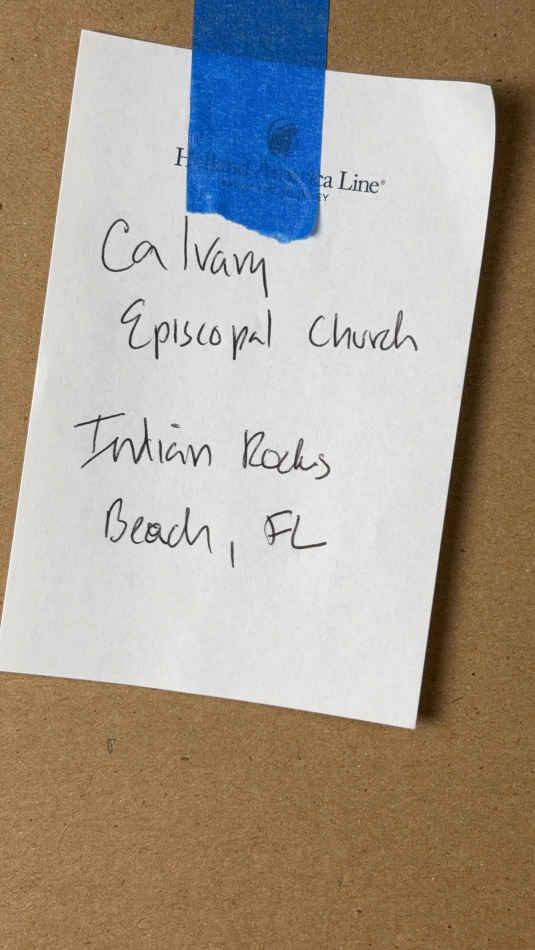 Line®
Calvary
Episcopal Church
Indian Rocks
Beach, FL